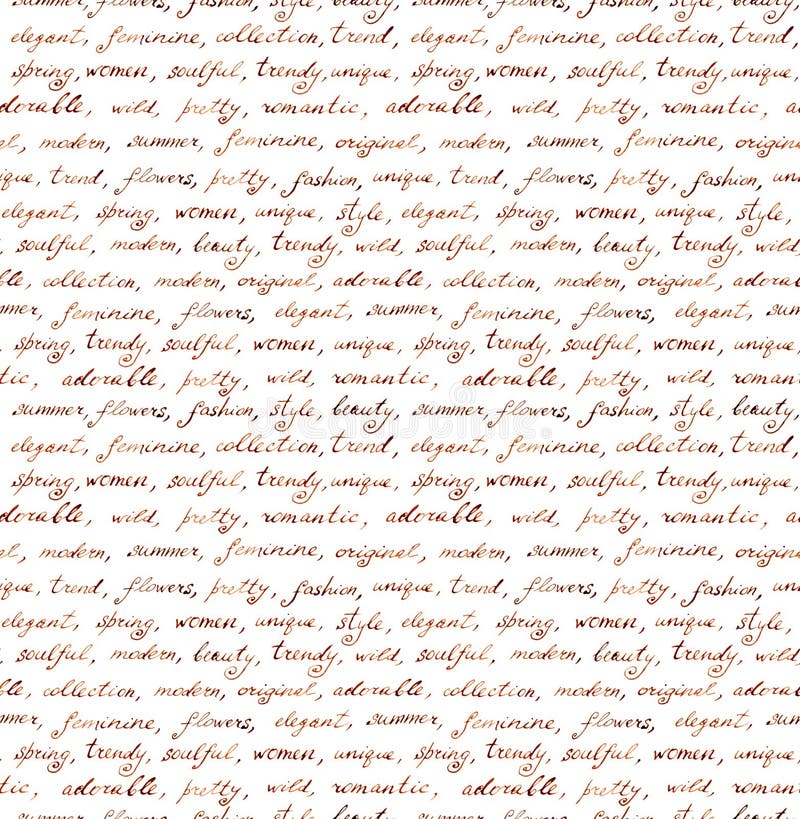 summer, flowers, fashion, style, beauty, summer, flowers, fashion, style, beauty,
elegant, feminine, collection, trend, elegant, feminine, collection, trend,
spring, women, soulful, trendy, unique, spring, women, soulful, trendy, unique,
dorable, wild, pretty, romantic, adorable, wild, pretty, romantic, a
al, modern, summer, feminine, original, modern, summer, feminine, origina
ique, trend, flowers, pretty, fashion, unique, trend, flowers, pretty, fashion, uni
elegant, spring, women, unique, style, elegant, spring, women, unique, style,
, soulful, modern, beauty, trendy, wild, soulful, modern, beauty, trendy, wild
ble, collection, modern, original, adorable, collection, modern, original, adorab
mmer, feminine, flowers, elegant, summer, feminine, flowers, elegant, sum
, spring, trendy, soulful, women, unique, spring, trendy, soulful, women, unique
tic, adorable, pretty, wild, romantic, adorable, pretty, wild, roman
summer, flowers, fashion, style, beauty, summer, flowers, fashion, style, beauty,
elegant, feminine, collection, trend, elegant, feminine, collection, trend,
spring, women, soulful, trendy, unique, spring, women, soulful, trendy, unique,
dorable, wild, pretty, romantic, adorable, wild, pretty, romantic, a
al, modern, summer, feminine, original, modern, summer, feminine, origina
ique, trend, flowers, pretty, fashion, unique, trend, flowers, pretty, fashion, uni
elegant, spring, women, unique, style, elegant, spring, women, unique, style,
, soulful, modern, beauty, trendy, wild, soulful, modern, beauty, trendy, wild
ble, collection, modern, original, adorable, collection, modern, original, adorab
mmer, feminine, flowers, elegant, summer, feminine, flowers, elegant, sum
, spring, trendy, soulful, women, unique, spring, trendy, soulful, women, unique
tic, adorable, pretty, wild, romantic, adorable, pretty, wild, roman
summer, flowers, fashion, style, beauty, summer, flowers, fashion, style, beauty,